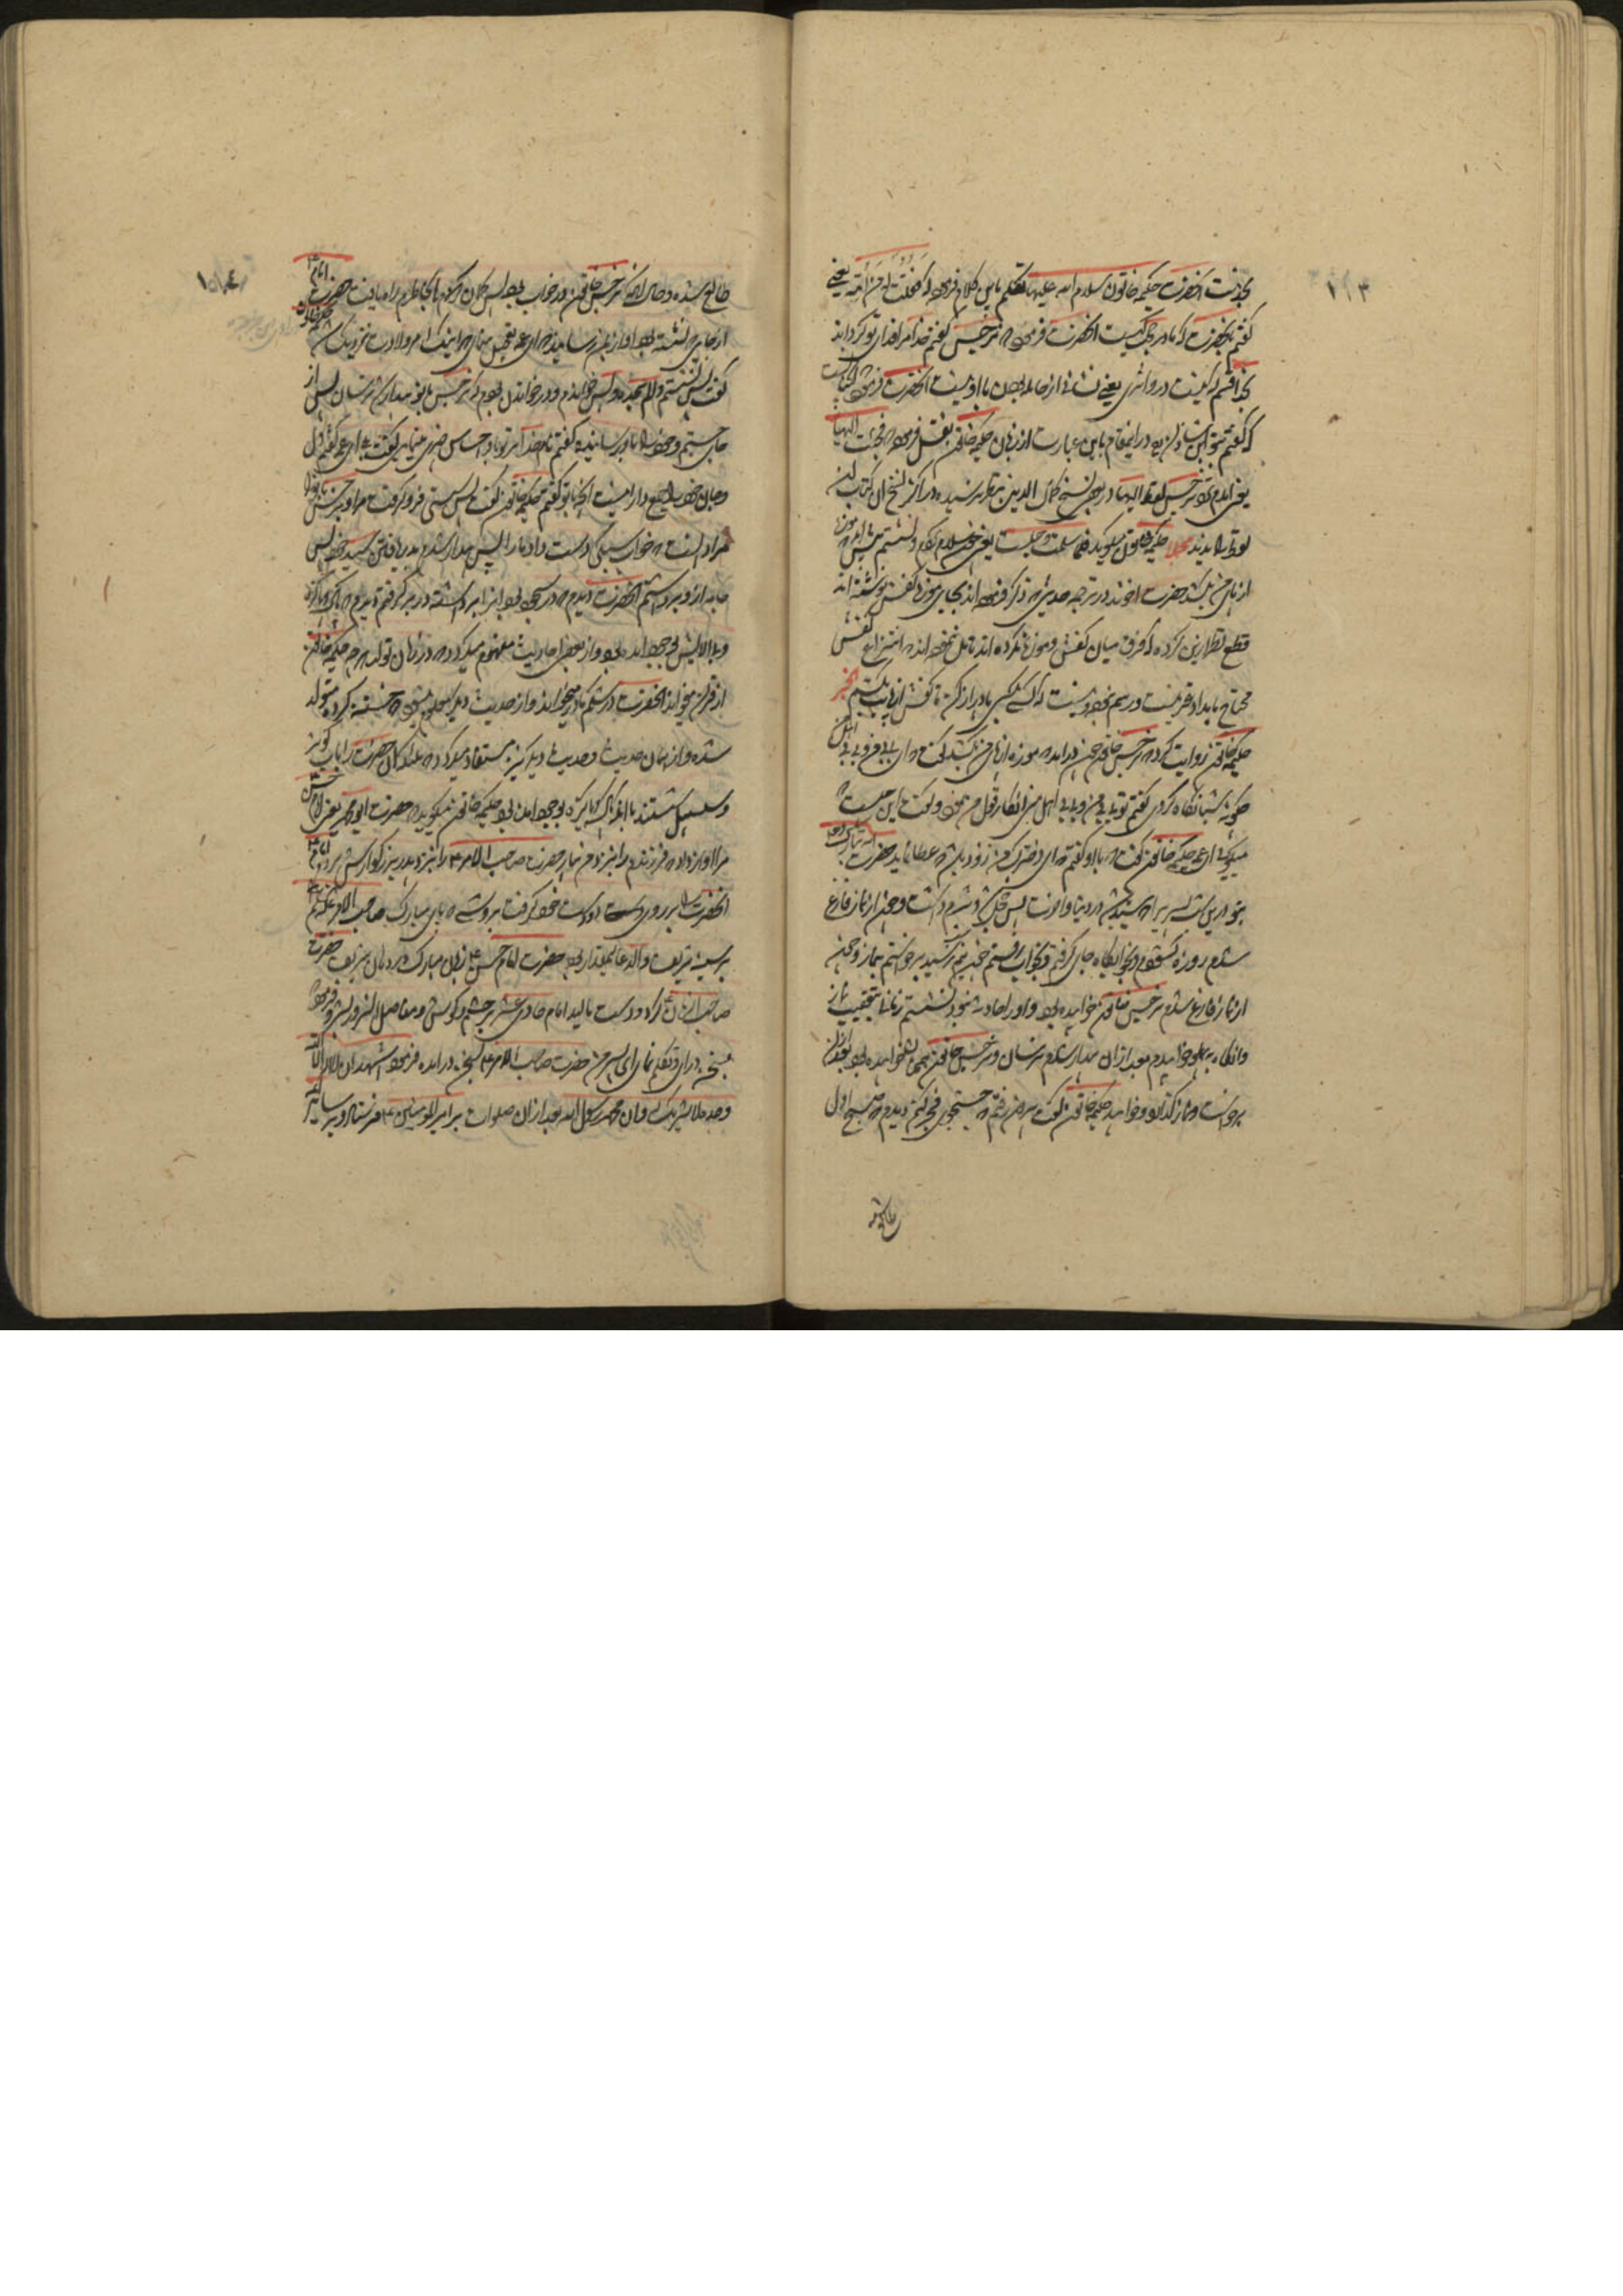 ۱۰۳
بخدمت آنحضرت حکیمه خاتون سلام الله علیها تکلم باین کلام فرموده که فقلت له من امه یعنی
گفتم بحضرت که مادر کیست آنحضرت فرمود که نرجس گفتم خدا مرا فدای تو گرداند
بخدا قسم که نیست در او اثری یعنی نشانی از حامله بودن با او نیست آنحضرت فرمود
که گفتم در اینمقام باین عبارت از زبان حکیمه خاتون نقل فرموده فجئت الیها
یعنی آمدم نزد نرجس لفظ الیها در بعض نسخ کمال الدین بنظر رسیده و در اکثر نسخ آن کتاب این
لفظ را ندیدند مجملا حکیمه خاتون میگوید فلما سلمت و جلست یعنی چون سلام کردم و نشستم نرجس آمد که موزه
از پای من بکشد حضرت آخوند در ترجمه حدیثی که ذکر فرموده اند بجای موزه کفش نوشته اند
قطع نظر از این کرده که فرق میان کفش و موزه نکرده اند تامل نفرموده اند که انتزاع کفش
محتاج بامداد غیر نیست و رسم نبوده و نیست که کسی بکسی پا دراز کن تا کفش از پایت بکشم بخبر
حکیمه خاتون روایت کرده که نرجس خاتون چون در آمده موزه از پای من بکشد گفت که ای بی بی من و بی بی اهل من
چگونه شبانگاه کردی گفتم تو بی بی من و بی بی اهل منی انکار قول من نمود و گفت این چیست که
میگوئی ای عمه حکیمه خاتون گفت که با او گفتم که ای دخترک من زود باشد که عطا نماید حضرت الله تبارک و تعالی
بتو در این شب پسر یرا که سید باشد در دنیا و آخرت پس خجل شد و شرم داشت و چون از نماز فارغ
شدم روزه گشودم و بخوابگاه جای گرفتم و بخواب رفتم چون نیم شب رسید برخواستم بنماز و چون
از نماز فارغ شدم نرجس خاتون خوابیده بود و او را حادثه نبود نشستم زمانی بتعقیب نماز
و آنگاه بپهلو خوابیدم بعد از آن بیدار شدم ترسان و نرجس خاتون همچنان خوابیده بود بعد از آن
برخواست و نماز گذارد و خوابید حکیمه خاتون گوید بیرون رفتم که جستجوی فجر کنم دیدم که صبح اول
طالع شده
۱۰۴
طالع شده و حال آنکه نرجس خاتون در خواب بود پس گمان در بخاطرم راه یافت حضرت امام ع
از جایی که نشسته بود آواز بمن رسانید که ای عمه تعجیل منمای که اینک امر ولادت نزدیک است حکیمه خاتون
گفت پس نشستم و الم سجده و یس خواندم و در خواندن بودم که نرجس بیدار شد ترسان پس از
جای جستم و خود را باو رسانیدم گفتم نام خدا بر تو باد احساس چیزی مینمایی گفت بلی ای عمه گفتم دل
و جان خود را جمع دار اینست آنچه با تو گفتم حکیمه خاتون گفت پس سستی فرو گرفت مرا و نرجس را
مراد آنست که خواب سبکی دست داد ما را پس بیدار شدم بدریافتن سید خود پس
جامه از او برداشتم آنحضرت را دیدم که در سجود بود او را برداشته در بر گرفتم دیدم که پاک و پاکیزه
و بی آلایش بوجود آمده بود و از بعض احادیث مفهوم میگردد که در زمان تولد هر چه حکیمه خاتون
از قرآن میخواند آنحضرت در شکم مادر میخواند و از حدیث دیگر معلوم میشود که ختنه کرده متولد
شده و از همان حدیث و حدیث دیگر نیز مستفاد میگردد که ملائکه آن حضرت را بآب کوثر
و سلسبیل شستند با آنکه پاک و پاکیزه بوجود آمده بود حکیمه خاتون میگوید که حضرت ابو محمد یعنی امام حسن ع
مرا آواز داد که فرزندم را بنزد من بیار حضرت صاحب الامر ع را بنزد پدر بزرگوارش بردم امام ع
آنحضرت را بر روی دست خود گرفت بروشی که پای مبارک صاحب الامر علیه السلام
بر سینه شریف والد عالیمقدار بود حضرت امام حسن ع زبان مبارک در دهان شریف حضرت
صاحب الزمان ع کرد و دست مالید امام حادی عشر بر چشم و گوش و مفاصل آن سرور بشر و فرمود
سخن در آی و تکلم نمای ای پسر من حضرت صاحب الامر ع بسخن در آمده فرمود اشهد ان لا اله الا الله
وحده لا شریک له و ان محمدا رسول الله بعد از آن صلوات بر امیر المومنین ع فرستاد و بر سایر ائمه